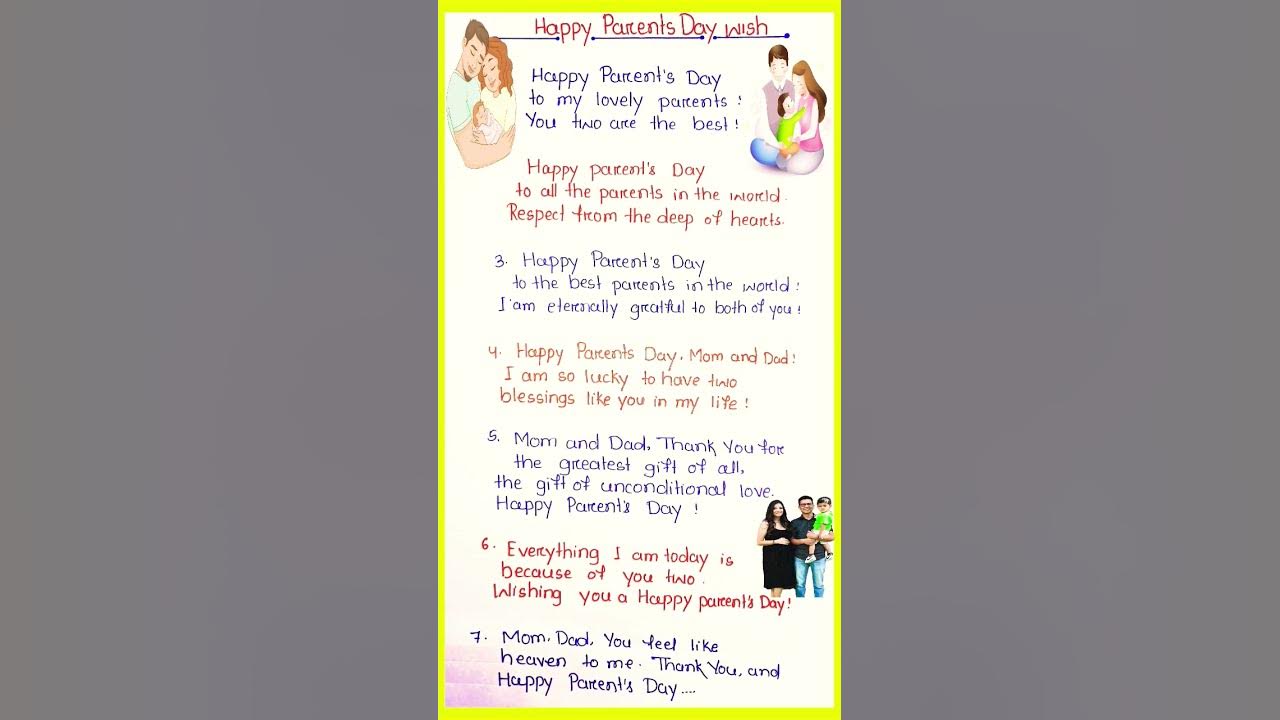 Happy Parents Day wish
Happy Parent's Day
to my lovely parents !
You two are the best !
Happy parent's Day
to all the parents in the world.
Respect from the deep of hearts.
3. Happy Parent's Day
to the best parents in the world !
I am eternally greatful to both of you !
4. Happy Parents Day, Mom and Dad !
I am so lucky to have two
blessings like you in my life !
5. Mom and Dad, Thank You for
the greatest gift of all,
the gift of unconditional love.
Happy Parent's Day !
6. Everything I am today is
because of you two.
Wishing you a Happy parent's Day!
7. Mom, Dad, You feel like
heaven to me. Thank You, and
Happy Parent's Day....